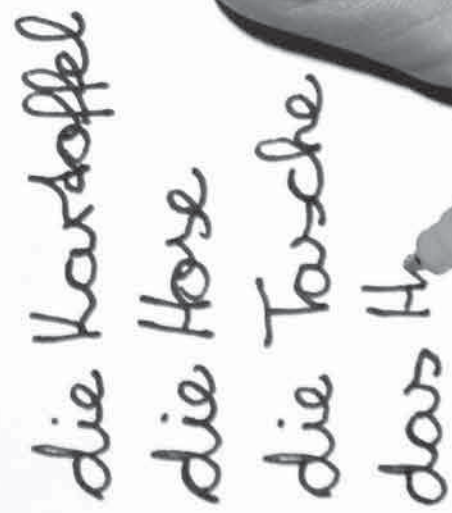 die Kartoffel
die Hose
die Tasche
das H